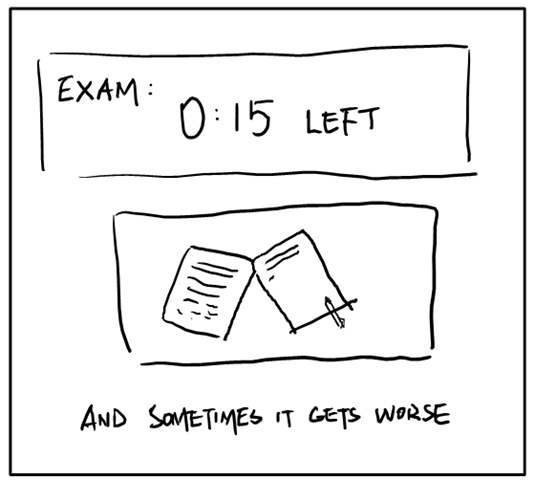 EXAM:
0:15 LEFT
AND SOMETIMES IT GETS WORSE